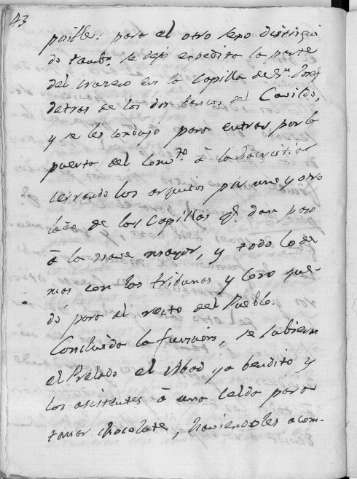 43
posible: para el otro sexo
do tanto, se dejó expedita la parte
del crucero en la Capilla de Sn. José
detras de los dos bancos del Cavildo,
y se les condujo para entrar por la
puerta del Conv.to á la Sacristia
cerrando los arquitos por uno y otro
lado de las Capillas q.e dan paso
á la nave mayor, y todo lo de-
mas con las tribunas y Coro que-
do para el resto del Pueblo.
Concluida la funcion, se subieron
el Prelado el Abad ya bendito y
los asistentes á una Celda para
tomar chocolate, haviendoles acom-